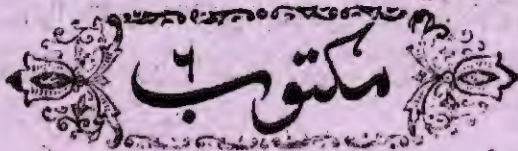 مکتوب ۶